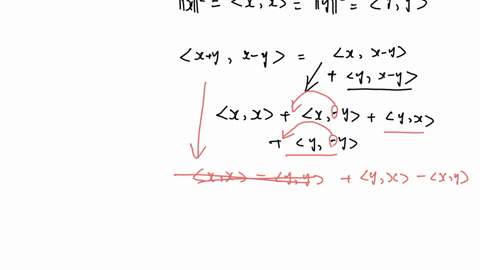 ‖x‖² = <x, x> = ‖y‖² = <y, y>
<x+y, x-y> = <x, x-y>
+ <y, x-y>
<x, x> + <x, -y> + <y, x>
+ <y, -y>
<x, x> - <y, y> + <y, x> - <x, y>